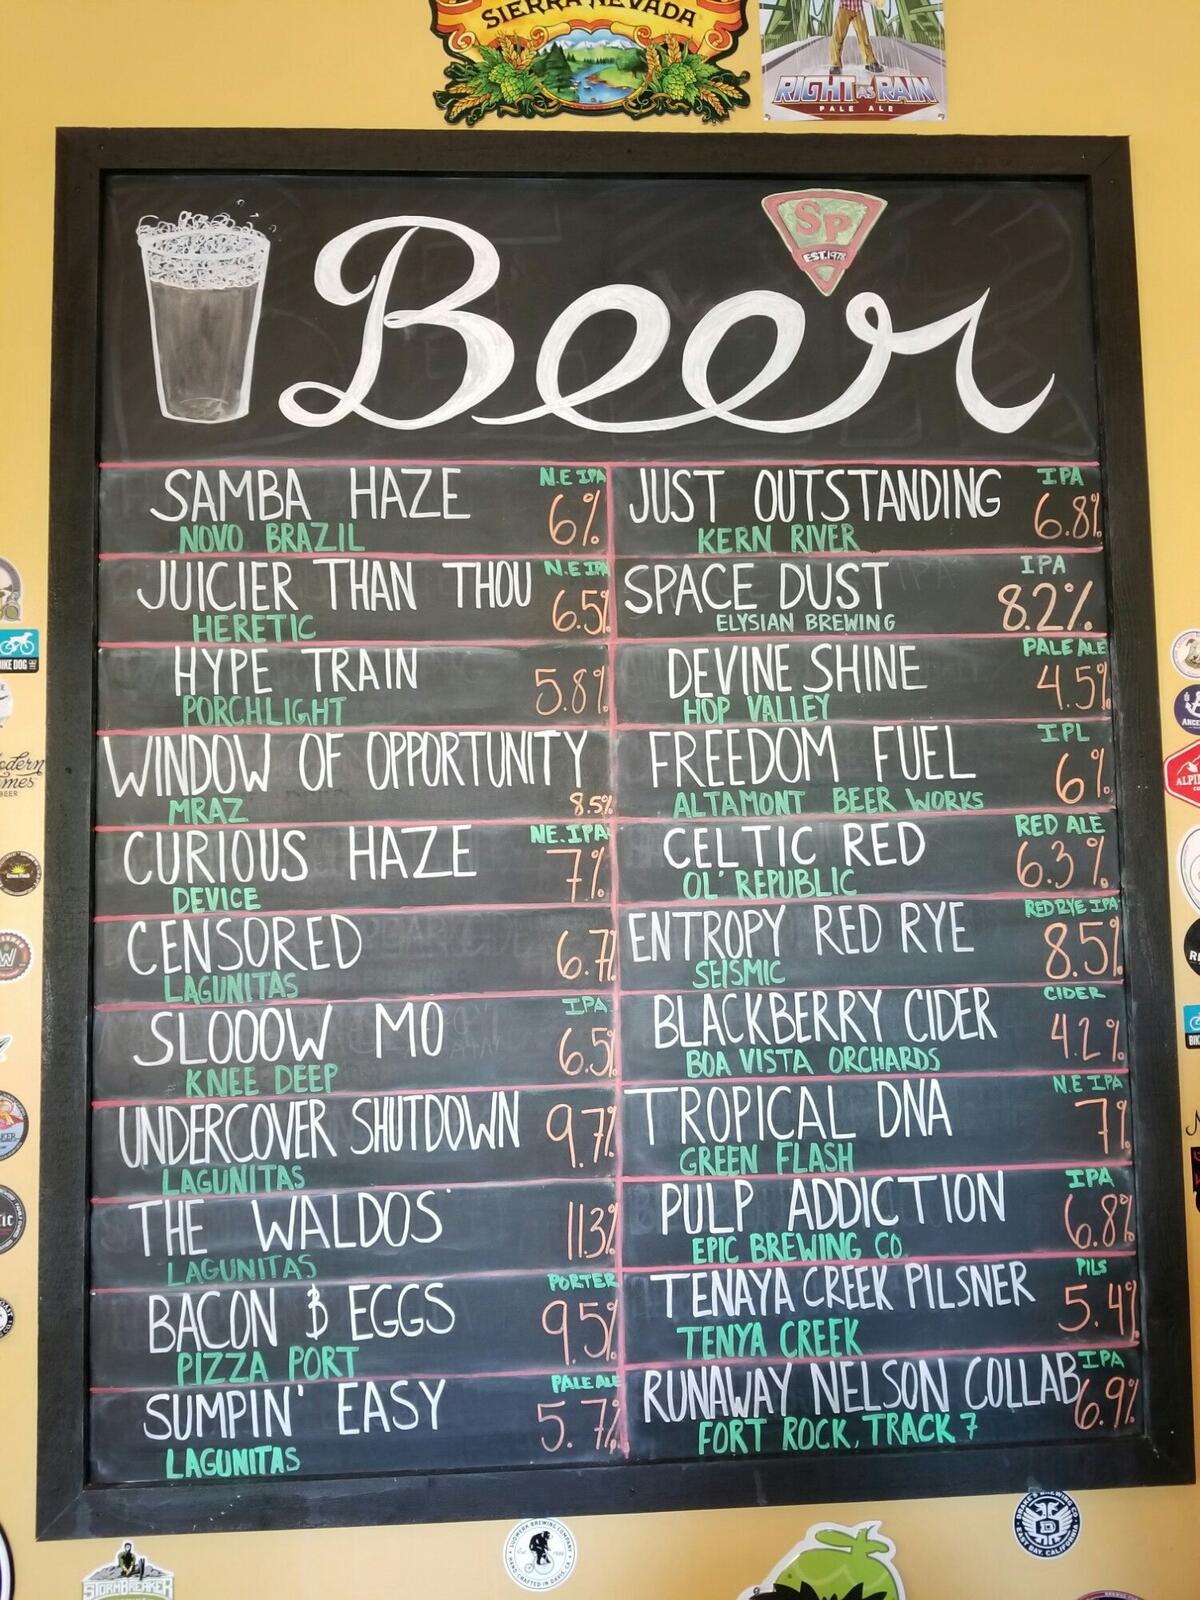 SIERRA NEVADA
RIGHT AS RAIN
PALE ALE
SP
EST. 1978
Beer
SAMBA HAZE N.E IPA
NOVO BRAZIL 6%
JUICIER THAN THOU N.E IPA
HERETIC 6.5%
HYPE TRAIN 5.8%
PORCHLIGHT
WINDOW OF OPPORTUNITY
MRAZ 8.5%
CURIOUS HAZE NE.IPA
DEVICE 7%
CENSORED 6.7%
LAGUNITAS
SLOOOW MO IPA
KNEE DEEP 6.5%
UNDERCOVER SHUTDOWN 9.7%
LAGUNITAS
THE WALDOS' 11.3%
LAGUNITAS
BACON & EGGS PORTER
PIZZA PORT 9.5%
SUMPIN' EASY PALE ALE
LAGUNITAS 5.7%
JUST OUTSTANDING IPA
KERN RIVER 6.8%
SPACE DUST IPA
ELYSIAN BREWING 8.2%
DEVINE SHINE PALE ALE
HOP VALLEY 4.5%
FREEDOM FUEL IPL
ALTAMONT BEER WORKS 6%
CELTIC RED RED ALE
OL' REPUBLIC 6.3%
ENTROPY RED RYE RED RYE IPA
SEISMIC 8.5%
BLACKBERRY CIDER CIDER
BOA VISTA ORCHARDS 4.2%
TROPICAL DNA N.E IPA
GREEN FLASH 7%
PULP ADDICTION IPA
EPIC BREWING CO. 6.8%
TENAYA CREEK PILSNER PILS
TENYA CREEK 5.4%
RUNAWAY NELSON COLLAB IPA
FORT ROCK, TRACK 7 6.9%
STORMBREAKER
SUDWERK BREWING COMPANY
HAND CRAFTED IN DAVIS, CA
DRAKE'S BREWING CO
EAST BAY, CALIFORNIA